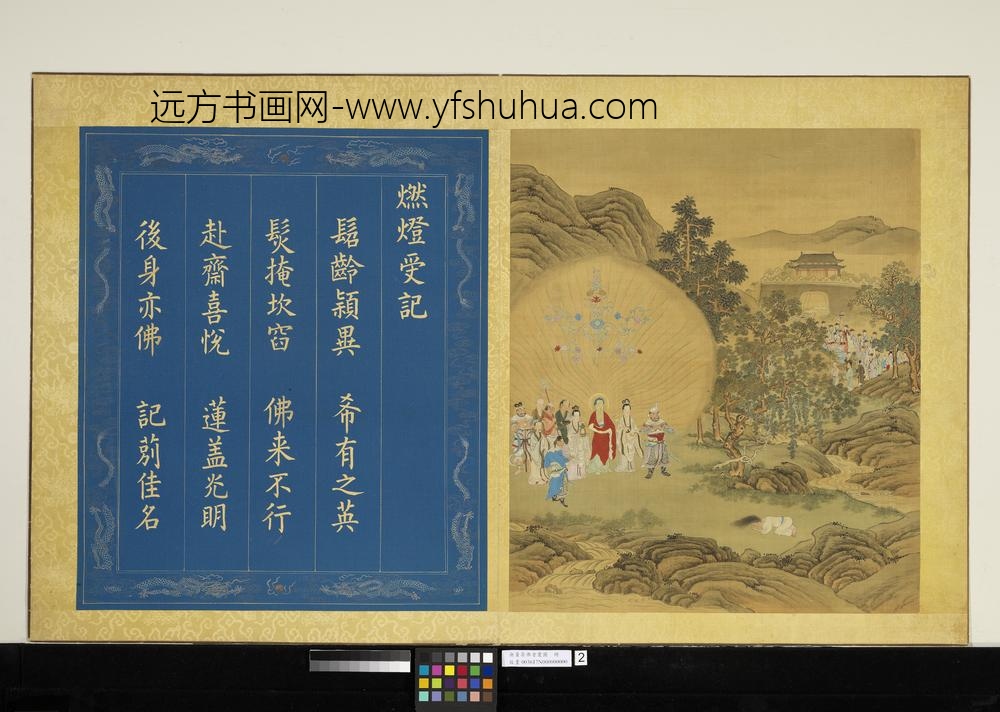 远方书画网-www.yfshuhua.com
燃燈受記
髫齡穎異 希有之英
髮掩坎窞 佛来不行
赴齋喜悅 蓮盖光明
後身亦佛 記莂佳名
2